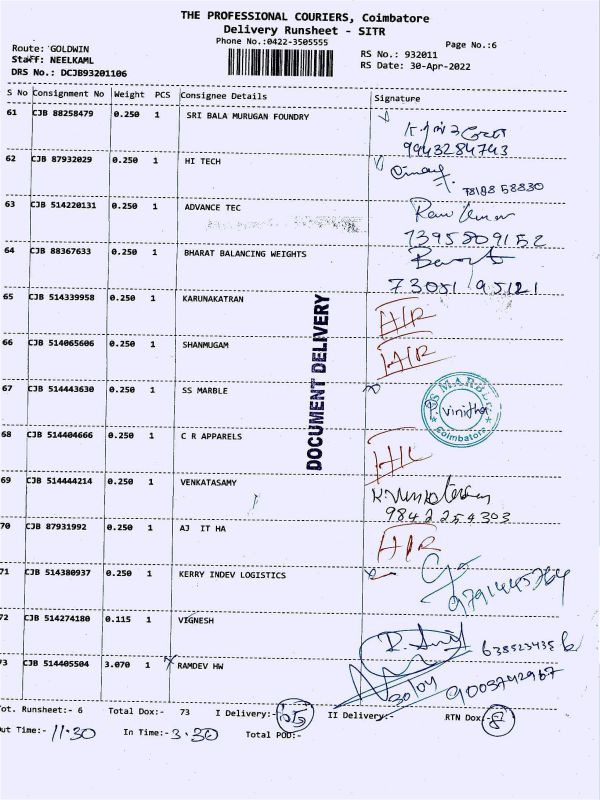 THE PROFESSIONAL COURIERS, Coimbatore
Delivery Runsheet - SITR
Phone No.:0422-3505555
Page No.:6
Route: GOLDWIN
Staff: NEELKAML
DRS No.: DCJB93201106
RS No.: 932011
RS Date: 30-Apr-2022
S No Consignment No Weight PCS Consignee Details Signature
61 CJB 88258479 0.250 1 SRI BALA MURUGAN FOUNDRY
9943284743
62 CJB 87932029 0.250 1 HI TECH
78188 58830
63 CJB 514220131 0.250 1 ADVANCE TEC
Ravi Kumar
7395809152
64 CJB 88367633 0.250 1 BHARAT BALANCING WEIGHTS
73051 95121
65 CJB 514339958 0.250 1 KARUNAKATRAN
66 CJB 514065606 0.250 1 SHANMUGAM
67 CJB 514443630 0.250 1 SS MARBLE
SS MARBLE
P. Vinitha
Coimbatore
68 CJB 514404666 0.250 1 C R APPARELS
69 CJB 514444214 0.250 1 VENKATASAMY
9842254303
70 CJB 87931992 0.250 1 AJ IT HA
71 CJB 514380937 0.250 1 KERRY INDEV LOGISTICS
72 CJB 514274180 0.115 1 VIGNESH
73 CJB 514405504 3.070 1 RAMDEV HW
30/04 9003742967
DOCUMENT DELIVERY
Tot. Runsheet:- 6 Total Dox:- 73 I Delivery:- 65 II Delivery:- RTN Dox:- 8
Out Time:- 11.30 In Time:- 3.30 Total POD:-